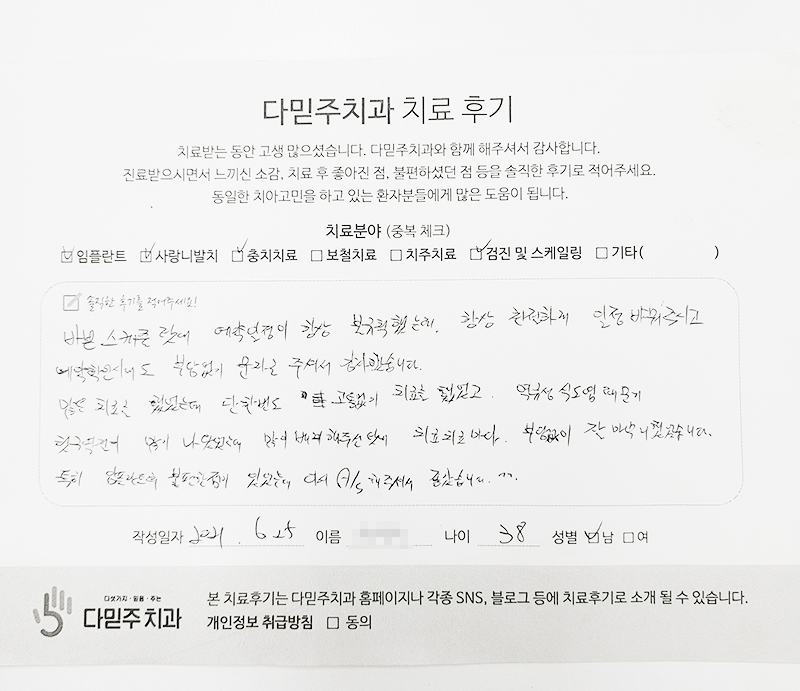 다믿주치과 치료 후기
치료받는 동안 고생 많으셨습니다. 다믿주치과와 함께 해주셔서 감사합니다.
진료받으시면서 느끼신 소감, 치료 후 좋아진 점, 불편하셨던 점 등을 솔직한 후기로 적어주세요.
동일한 치아고민을 하고 있는 환자분들에게 많은 도움이 됩니다.
치료분야 (중복 체크)
☑ 임플란트 ☑ 사랑니발치 ☑ 충치치료 ☐ 보철치료 ☐ 치주치료 ☑ 검진 및 스케일링 ☐ 기타( )
솔직한 후기를 적어주세요!
바쁜 스케쥴 탓에 예약일정이 항상 불규칙했는데, 항상 친절하게 일정 바꿔주시고
부담없이 문자를 주셔서 감사했습니다.
많은 치료를 했었는데 단 한번도 고통없이 치료를 했었고. 역류성 식도염 때문에
헛구역질이 많이 나왔었는데 많이 배려해주신 덕에 치료 치료마다. 부담없이 잘 마무리했습니다.
특히 임플란트의 불편한 점이 있었는데 A/S 해주셔서 좋았습니다. ^^.
작성일자 2021. 6. 25 이름 나이 38 성별 ☑ 남 ☐ 여
다섯가지·믿음·주는
다믿주치과
본 치료후기는 다믿주치과 홈페이지나 각종 SNS, 블로그 등에 치료후기로 소개 될 수 있습니다.
개인정보 취급방침 ☐ 동의